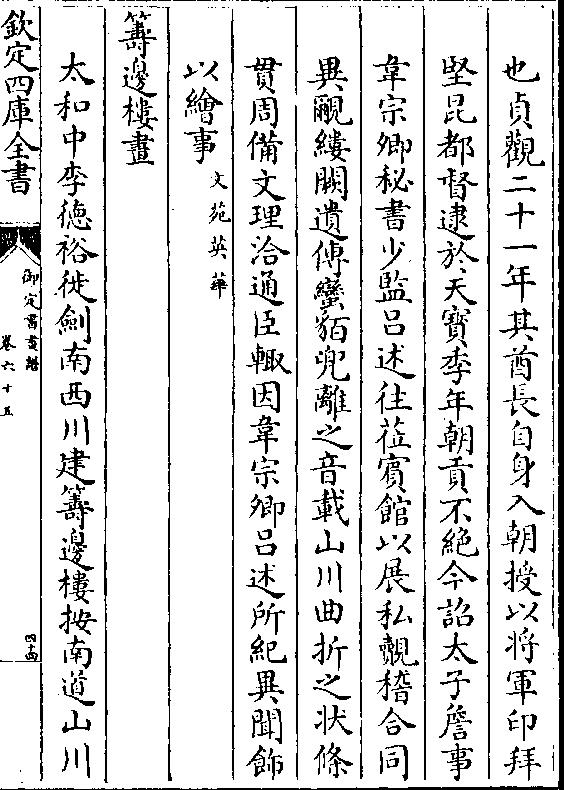 也貞觀二十一年其酋長自身入朝授以将軍印拜
堅昆都督逮於天寳季年朝貢不絶今詔太子詹事
韋宗卿秘書少監吕述往莅賓館以展私覿稽合同
異覼縷闕遺傳蠻貊兜離之音載山川曲折之状條
貫周備文理洽通臣輙因韋宗卿吕述所紀異聞飾
以繪事文苑英華
籌邊樓畫
太和中李徳裕徙劍南西川建籌邊樓按南道山川
欽定四庫全書
御定書畫譜
卷六十五
四十四